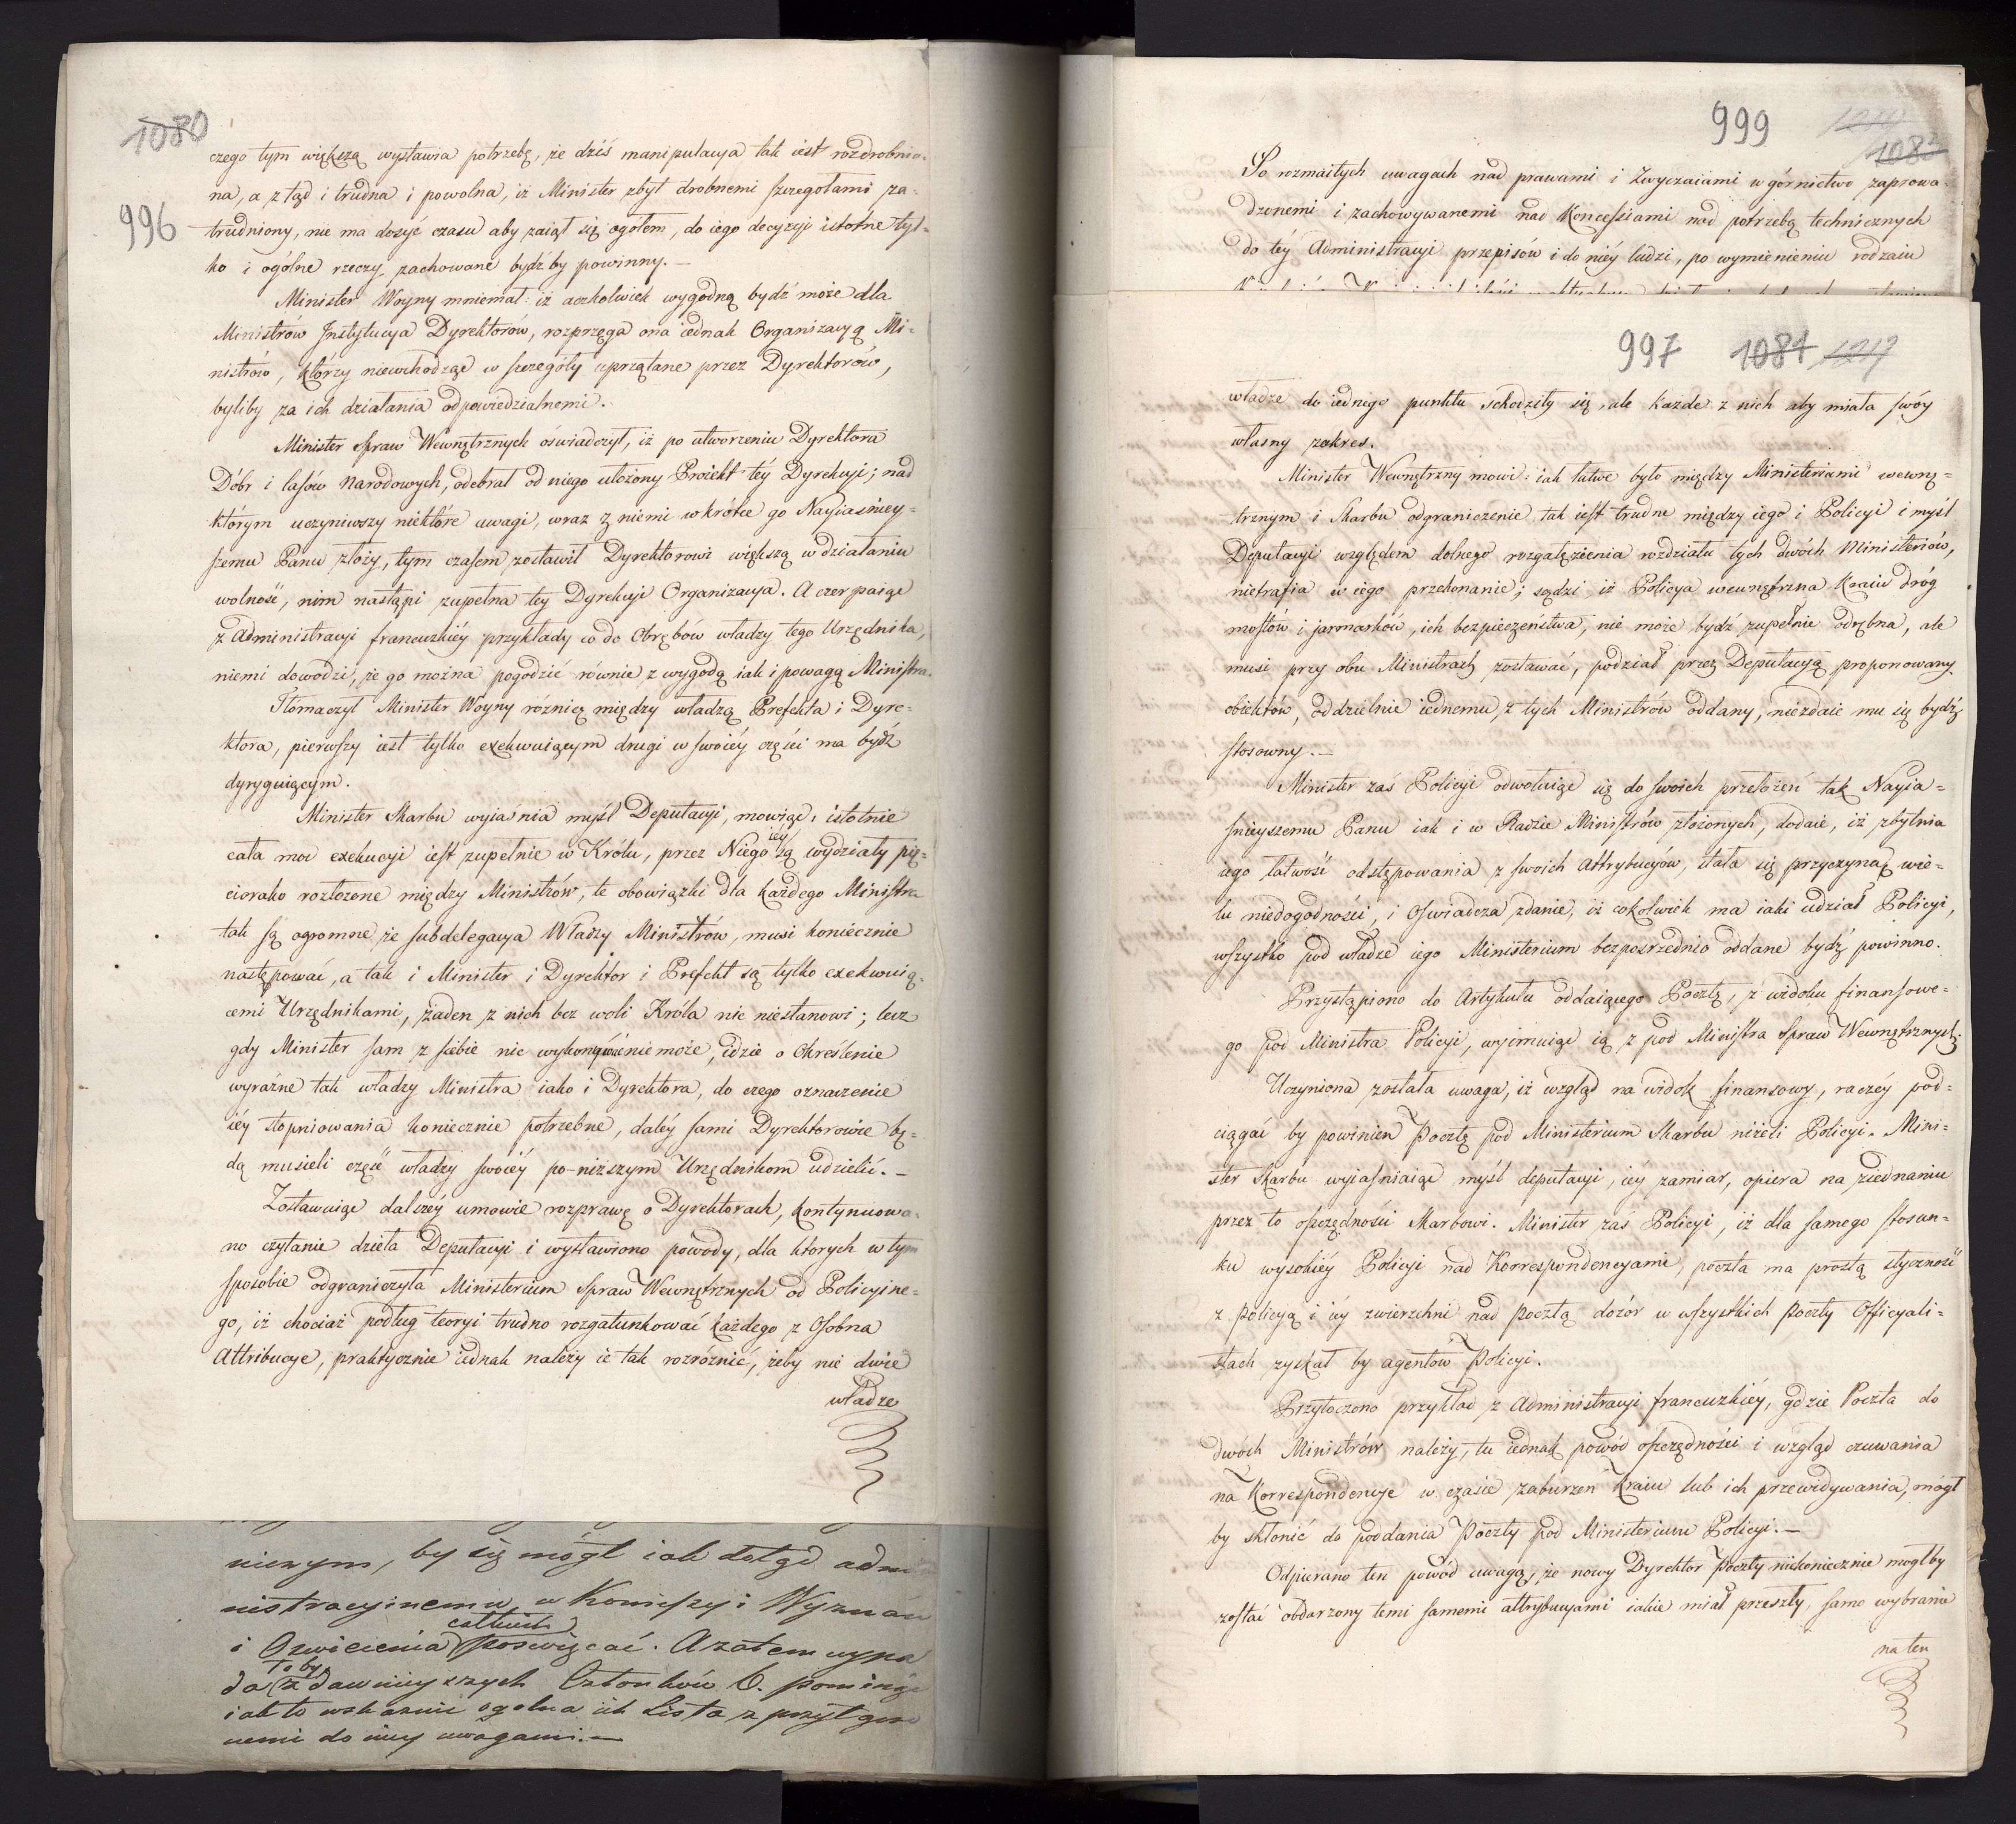 1080
996
czego tym większą wystawia potrzebę, że dziś manipulacya tak iest rozdrobnio-
na, a z tąd i trudna i powolna, iż Minister zbyt drobnemi szczegołami za-
trudniony, nie ma dosyć czasu aby zaiąć się ogółem, do iego decyzyi istotne tyl-
ko i ogólne rzeczy zachowane bydź by powinny. —
Minister Woyny mniemał: iż aczkolwiek wygodną bydź może dla
Ministrów Instytucya Dyrektorów, rozprzęga ona iednak Organizacyą Mi-
nistrów, którzy niewchodząc w szczegóły uprzątane przez Dyrektorów,
byliby za ich działania odpowiedzialnemi.
Minister Spraw Wewnętrznych oświadczył, iż po utworzeniu Dyrektora
Dóbr i lasów Narodowych, odebrał od niego ułożony Proiekt téy Dyrekcyi; nad
którym uczyniwszy niektóre uwagi, wraz z niemi wkrótce go Nayiaśniey-
szemu Panu złoży, tym czasem zostawił Dyrektorowi większą w działaniu
wolność, nim nastąpi zupełna tey Dyrekcyi Organizacya. A czerpaiąc
z Administracyi francuzkiéy przykłady co do Obrębów władzy tego Urzędnika,
niemi dowodzi, że go można pogodzić równie z wygodą iak i powagą Ministra.
Tłomaczył Minister Woyny różnicę między władzą Prefekta i Dyre-
ktora, pierwszy iest tylko exekwuiącym drugi w swoiéy części ma bydź
dyryguiącym.
Minister Skarbu wyiaśnia myśl Deputacyi, mowiąc: istotnie
cała moc exekucyi iest zupełnie w Królu, przez Niego iéy są wydziały pię-
ciorako rozłożone między Ministrów, te obowiązki dla każdego Ministra
tak są ogromne, że subdelegacya Władzy Ministrów, musi koniecznie
następować, a tak i Minister i Dyrektor i Prefekt są tylko exekwuią-
cemi Urzędnikami, żaden z nich bez woli Króla nic niestanowi; lecz
gdy Minister sam z siebie nic wykonywać niemoże, idzie o Określenie
wyraźne tak władzy Ministra iako i Dyrektora, do czego oznaczenie
iéy stopniowania koniecznie potrzebne, daléy sami Dyrektorowie bę-
dą musieli część władzy swoiéy po-niższym Urzędnikom udzielić. —
Zostawuiąc dalszéy umowie rozprawę o Dyrektorach, kontynuowa-
no czytanie dzieła Deputacyi i wystawiono powody, dla ktorych w tym
sposobie odgraniczyła Ministerium Spraw Wewnętrznych od Policyjne-
go, iż chociaż podług teoryi trudno rozgatunkować każdego z Osobna
Attribucye, praktycznie iednak należy ie tak rozróżnić, żeby nie dwie
władze
nicznym, by się mógł iak dotąd admi
nistracyjnemu w Komissyi Wyznań
i Oświecenia całkiem poswięcać. A zatem wypa
da To by z dawnieyszych Członków 6. pominąć
iak to wskazuie ogolna ich Lista z przyłączo
nemi do niey uwagami. —
999
1083
Po rozmaitych uwagach nad prawami i Zwyczaiami w górnictwo zaprowa-
dzonemi i zachowywanemi nad Koncessiami nad potrzebą technicznych
do téy Administracyi przepisów i do niéy ludzi, po wymienieniu rodzaiu
997 1081 1217
władze do iednego punktu schodziły się, ale każde z nich aby miała swóy
własny zakres.
Minister Wewnętrzny mowi: iak łatwe było między Ministeriami wewnę-
trznym i Skarbu odgraniczenie tak iest trudne między iego i Policyi i myśl
Deputacyi względem dolnego rozgałęzienia rozdziału tych dwóch Ministeriów,
nietrafia w iego przekonanie; sądzi, iż Policya wewnętrzna Kraiu dróg
mostów i jarmarków, ich bezpieczeństwa, nie może bydź zupełnie odrębna, ale
musi przy obu Ministrach zostawać, podział przez Deputacyą proponowany
obiektów, oddzielnie iednemu z tych Ministrów oddany, niezdaie mu się bydź
stosowny. —
Minister zaś Policyi odwołuiąc się do swoich przełożeń tak Nayia-
śnieyszemu Panu iak i w Radzie Ministrów złożonych, dodaie, iż zbytnia
iego łatwość odstępowania z swoich Attrybucyów, stała się przyczyną wie-
lu niedogodności, i Oswiadcza zdanie, iż cokolwiek ma iaki udział Policyi,
wszystko pod władze iego Ministerium bezpośrednio oddane bydź powinno.
Przystąpiono do Artykułu oddaiącego Pocztę, z widoku finansowe-
go pod Ministra Policyi, wyimuiąc ią z pod Ministra Spraw Wewnętrznych.
Uczyniona została uwaga, iż wzgląd na widok finansowy, raczéy pod-
ciągać by powinien Pocztę pod Ministerium Skarbu niżeli Policyi. Mini-
ster Skarbu wyiaśniaiąc myśl deputacyi, iéy zamiar, opiera na ziednaniu
przez to oszczędności Skarbowi. Minister zaś Policyi, iż dla samego stosun-
ku wysokiéy Policyi nad Korrespondencyami, poczta ma prostą styczność
z Policyą i iéy zwierzchni nad Pocztą dozór w wszystkich Poczty Officyali-
stach zyskał by agentów Policyi.
Przytoczono przykład z Administracyi francuzkiéy, gdzie Poczta do
dwóch Ministrów należy, tu iednak powód oszczędności i wzgląd czuwania
na Korrespondencye w czasie zaburzeń Kraiu lub ich przewidywania, mógł
by skłonić do poddania Poczty pod Ministerium Policyi. —
Odpierano ten powód uwagą, że nowy Dyrektor Poczty niekoniecznie mogłby
zostać obdarzony temi samemi attrybucyami iakie miał przeszły, samo wybranie
na ten